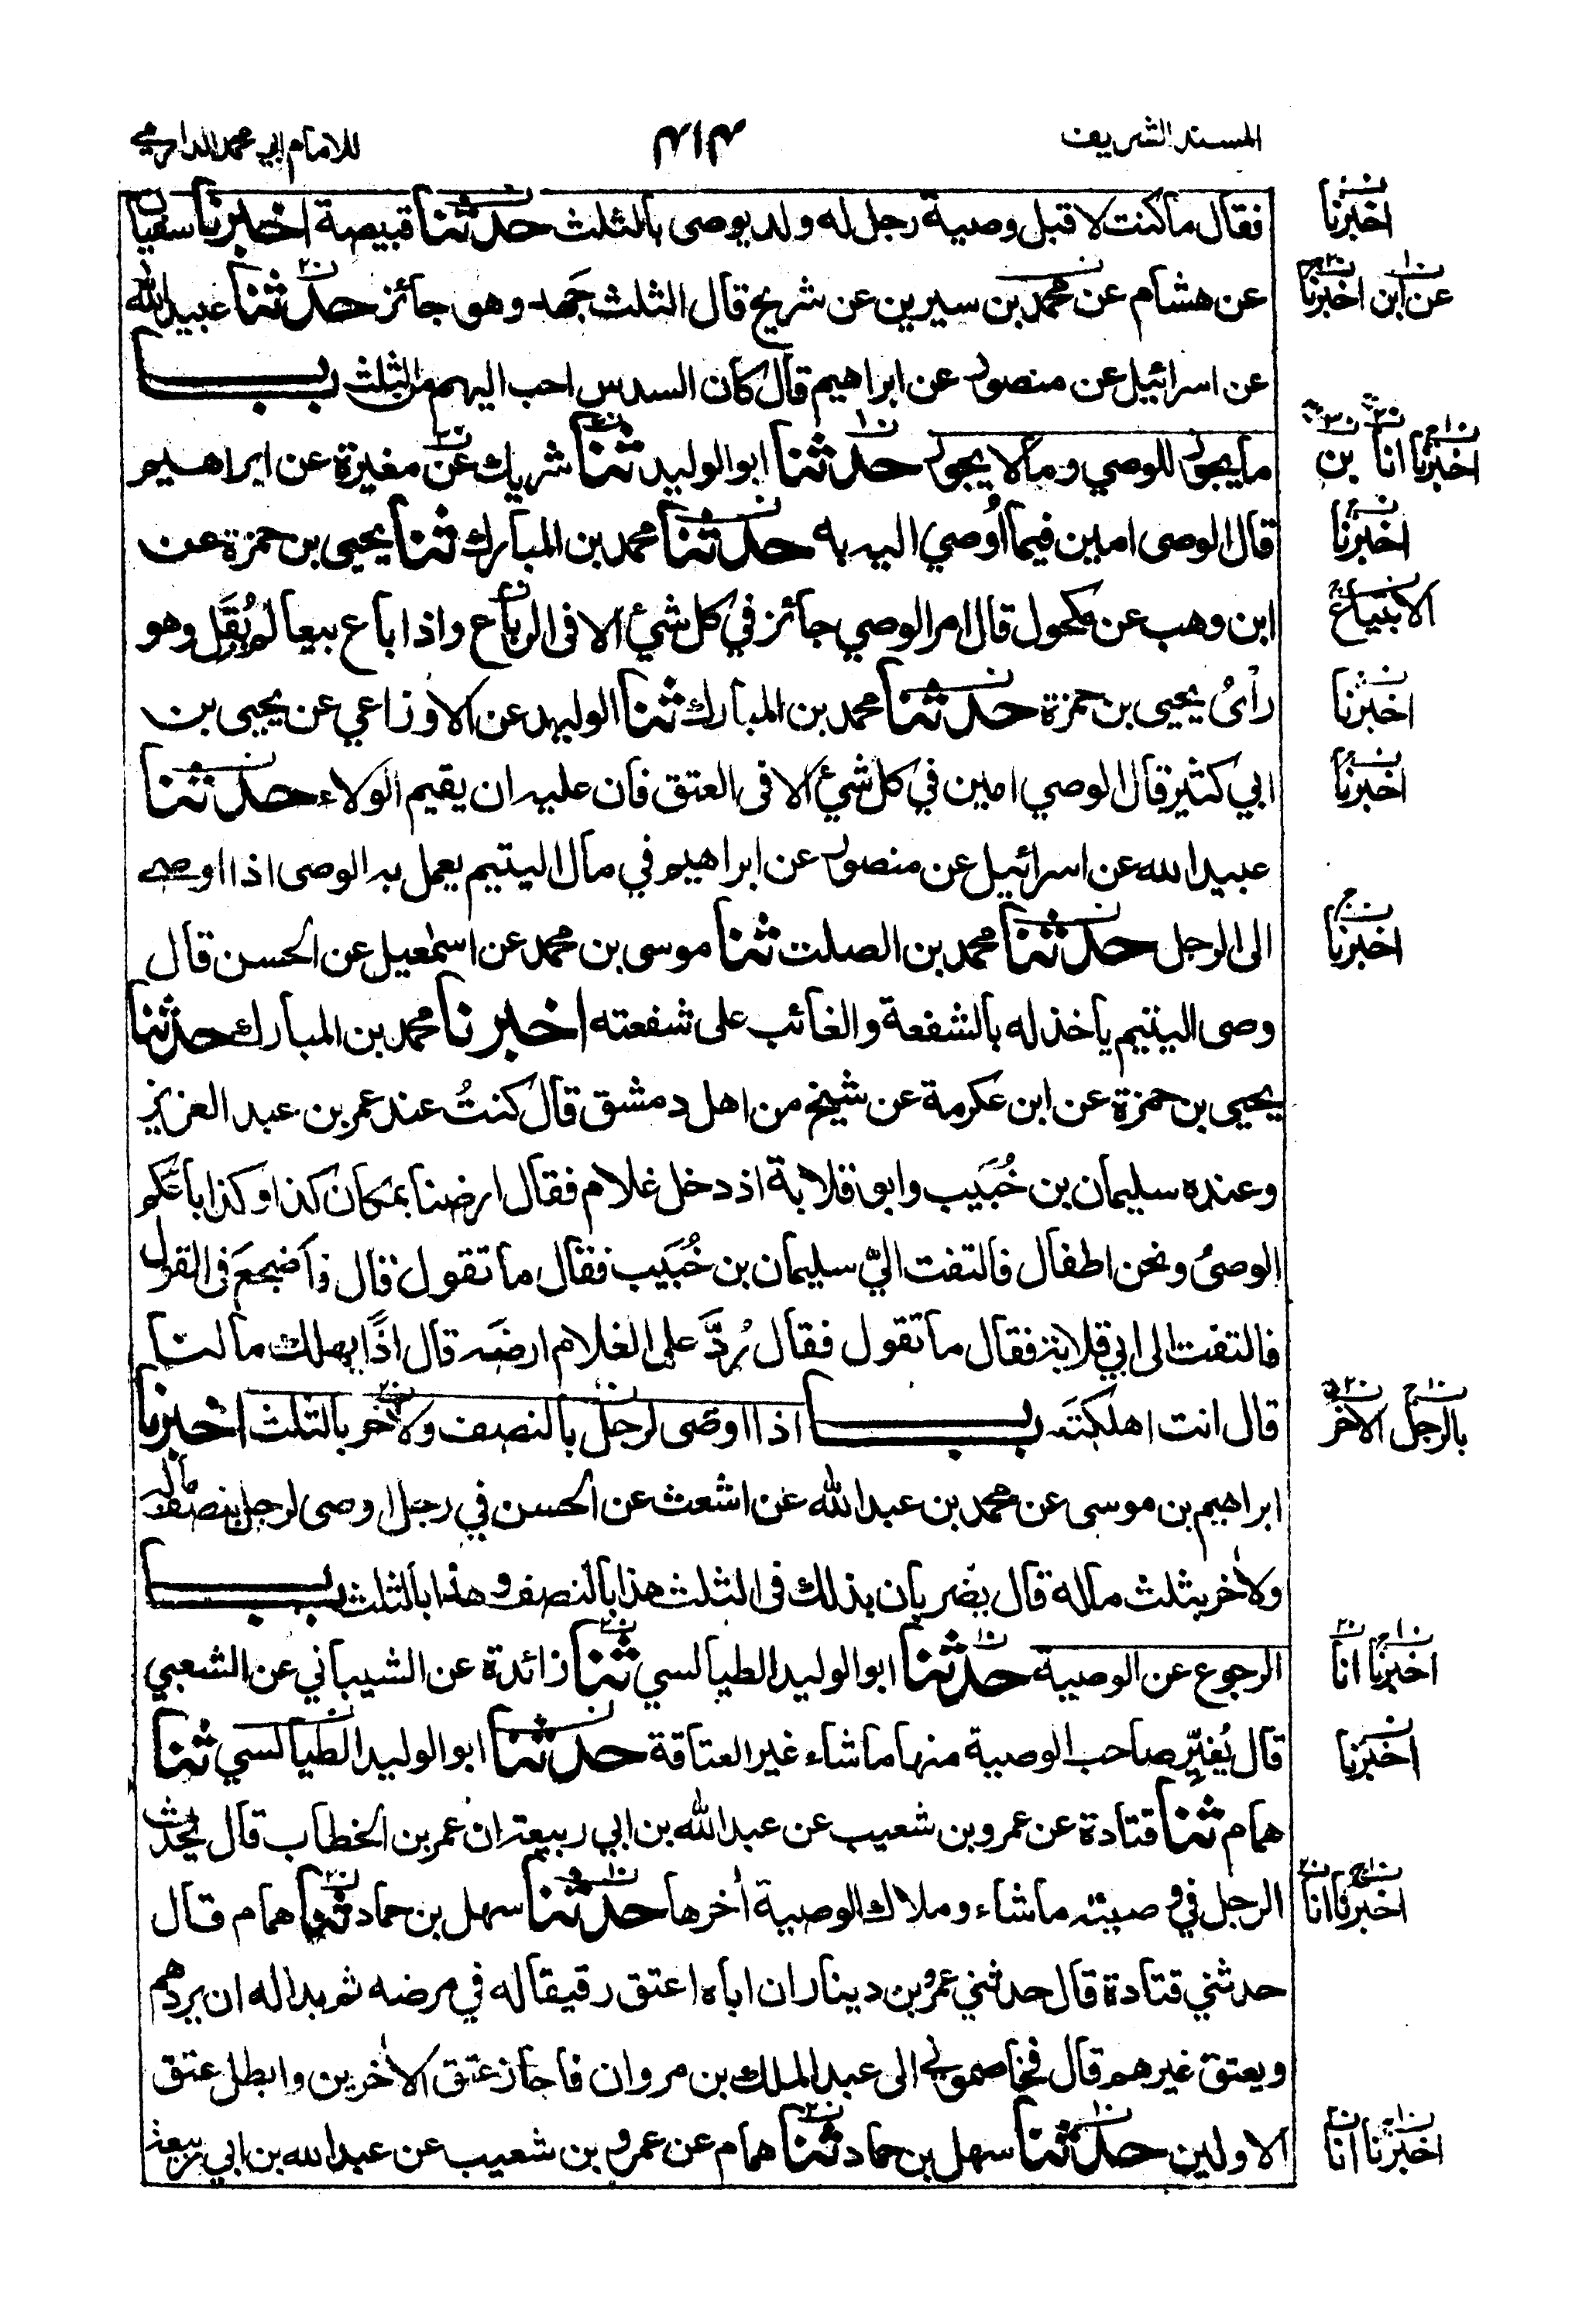 المسند الشريف ٤١٣ للامام ابي محمد الدارمي
فقال ما كنت لا قبل وصية رجل له ولد يوصى بالثلث حدثنا قبيصة اخبرنا سفيان
عن هشام عن محمد بن سيرين عن شريح قال الثلث جهد وهو جائز حدثنا عبيد الله
عن اسرائيل عن منصور عن ابراهيم قال كان السدس احب اليهم من الثلث باب
ما يجوز للوصي وما لا يجوز حدثنا ابو الوليد ثنا شريك عن مغيرة عن ابراهيم
قال الوصى امين فيما اُوصي اليه به حدثنا محمد بن المبارك ثنا يحيى بن حمزة عن
ابن وهب عن مكحول قال امر الوصي جائز في كل شيئ الا فى الرباع واذا باع بيعا لم يُقَل وهو
رأىُ يحيى بن حمزة حدثنا محمد بن المبارك ثنا الوليد عن الاوزاعي عن يحيى بن
ابي كثير قال الوصي امين في كل شيئ الا فى العتق فان عليه ان يقيم الولاء حدثنا
عبيد الله عن اسرائيل عن منصور عن ابراهيم في مال اليتيم يعمل به الوصى اذا اوصى
الى الرجل حدثنا محمد بن الصلت ثنا موسى بن محمد عن اسمٰعيل عن الحسن قال
وصى اليتيم ياخذ له بالشفعة والغائب على شفعته اخبرنا محمد بن المبارك حدثنا
يحيى بن حمزة عن ابن عكرمة عن شيخ من اهل دمشق قال كنتُ عند عمر بن عبد العزيز
وعنده سليمان بن خُبَيب وابو قلابة اذ دخل غلام فقال ارضنا بمكان كذا وكذا باعكم
الوصىُ ونحن اطفال فالتفت الىّ سليمان بن خُبَيب فقال ما تقول قال فاَضجعَ فى القول
فالتفت الى ابي قلابة فقال ما تقول فقال رُدَّ على الغلام ارضَه قال اذًا يهلك مالنا
قال انت اهلكتَه باب اذا اوصى لرجل بالنصف ولاٰخر بالثلث اخبرنا
ابراهيم بن موسى عن محمد بن عبد الله عن اشعث عن الحسن في رجل اوصى لرجل بنصف ماله
ولاٰخر بثلث ماله قال يضربان بذلك فى الثلث هذا بالنصف وهذا بالثلث باب
الرجوع عن الوصية حدثنا ابو الوليد الطيالسي ثنا زائدة عن الشيباني عن الشعبي
قال يُغيّر صاحب الوصية منها ما شاء غير العتاقة حدثنا ابو الوليد الطيالسي ثنا
همام ثنا قتادة عن عمرو بن شعيب عن عبد الله بن ابي ربيعة ان عمر بن الخطاب قال يُحدث
الرجل في وصيته ما شاء وملاك الوصية اٰخرها حدثنا سهل بن حماد ثنا همام قال
حدثني قتادة قال حدثني عمرو بن دينار ان اباه اعتق رقيقا له في مرضه ثم بدا له ان يردهم
ويعتق غيرهم قال فخاصموني الى عبد الملك بن مروان فاجاز عتق الاٰخرين وابطل عتق
الاولين حدثنا سهل بن حماد ثنا همام عن عمرو بن شعيب عن عبد الله بن ابي ربيعة
اخبرنا
عن ابن اخبرنا
اخبرنا انا بن
اخبرنا
الابتياع
اخبرنا
اخبرنا
اخبرنا
بالرجل الاخر
اخبرنا انا
اخبرنا
اخبرنا انا
اخبرنا انا